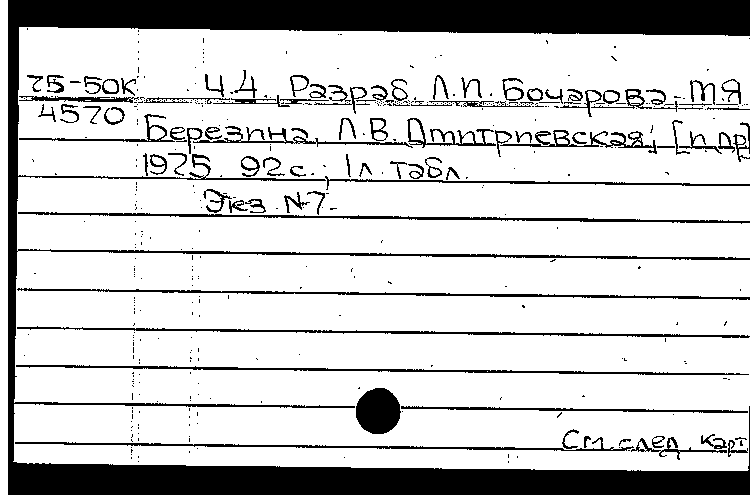 75-50к Ч.4. Разраб. Л.П. Бочарова, Т.Я
4570 Березина, Л.В. Дмитриевская; [и др]
1975. 92 с.; 1 л. табл.
Экз. №7.
См. след. карт